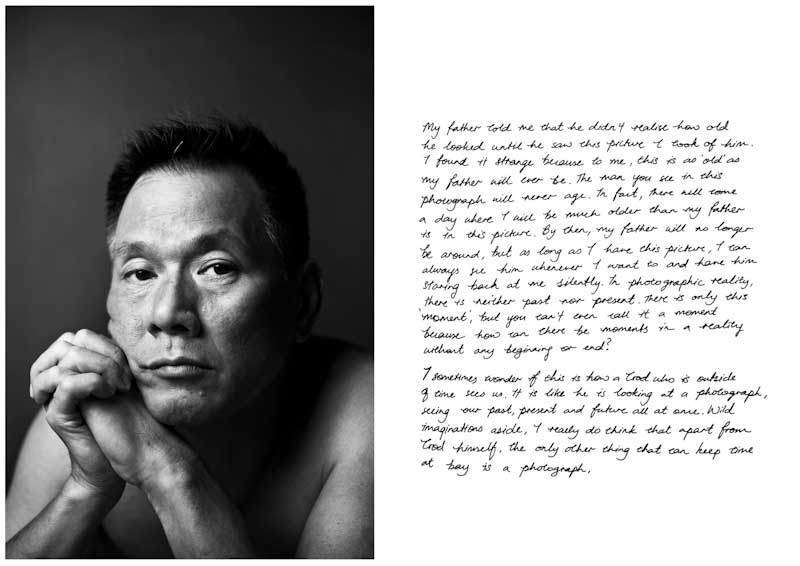 My father told me that he didn't realise how old
he looked until he saw this picture I took of him.
I found it strange because to me, this is as 'old' as
my father will ever be. The man you see in this
photograph will never age. In fact, there will come
a day where I will be much older than my father
is in this picture. By then, my father will no longer
be around, but as long as I have this picture, I can
always see him whenever I want to and have him
staring back at me silently. In photographic reality,
there is neither past nor present. There is only this
'moment', but you can't even call it a moment
because how can there be moments in a reality
without any beginning or end?
I sometimes wonder if this is how a God who is outside
of time sees us. It is like he is looking at a photograph,
seeing our past, present and future all at once. Wild
imaginations aside, I really do think that apart from
God himself, the only other thing that can keep time
at bay is a photograph.